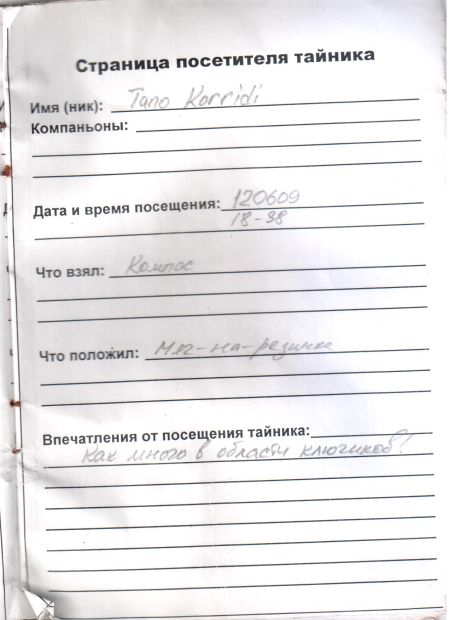 Страница посетителя тайника
Имя (ник): Tano Korridi
Компаньоны:
Дата и время посещения: 120609
18-38
Что взял: Компас
Что положил: Мяг-на-резинке
Впечатления от посещения тайника:
Как много в области ключиков!